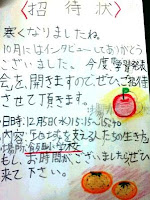 〈招待状〉
寒くなりましたね。
10月にはインタビューしてありがとう
ございました。今度学習発表
会を、開きますのでぜひご招待
させて頂きます。
・日時:12月5日(水)15:15~15:40
・内容:を支える人たちの生き方
・場所:小学校
もし、お時間がございましたらぜひ
来て下さい。